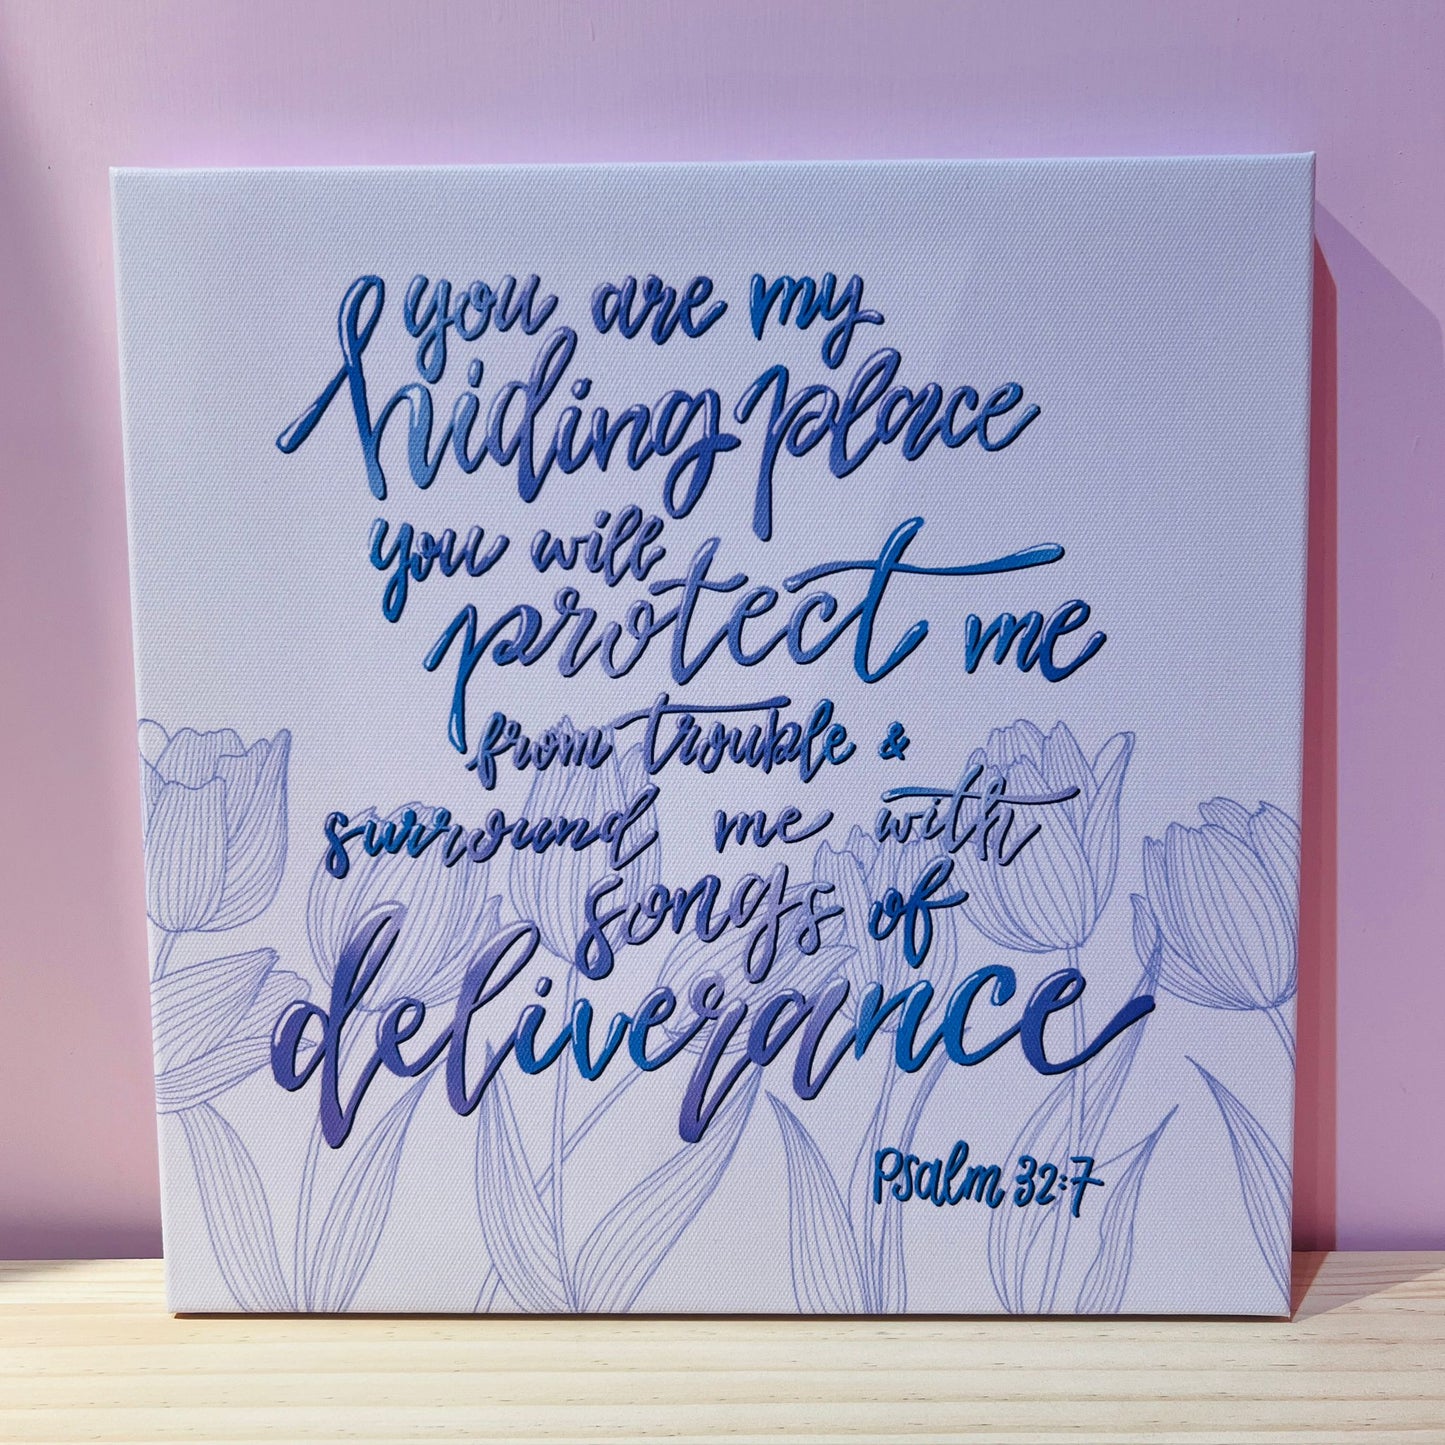 you are my
hiding place
you will
protect me
from trouble &
surround me with
songs of
deliverance
Psalm 32:7